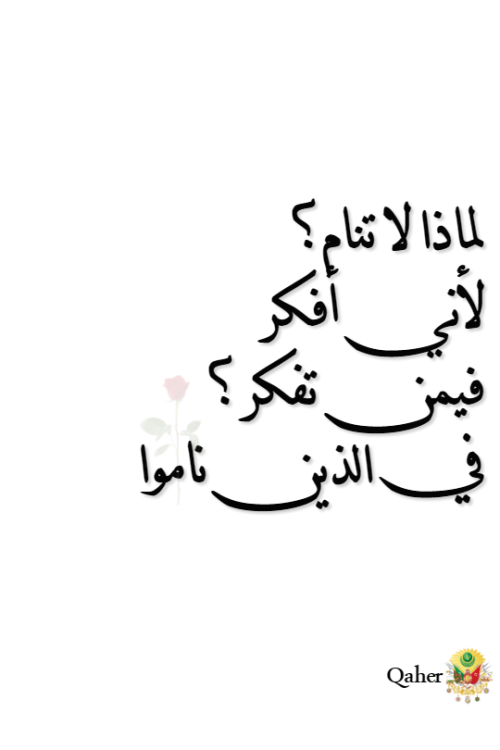 لماذا لا تنام؟
لأني أفكر
فيمن تفكر؟
في الذين ناموا
Qaher